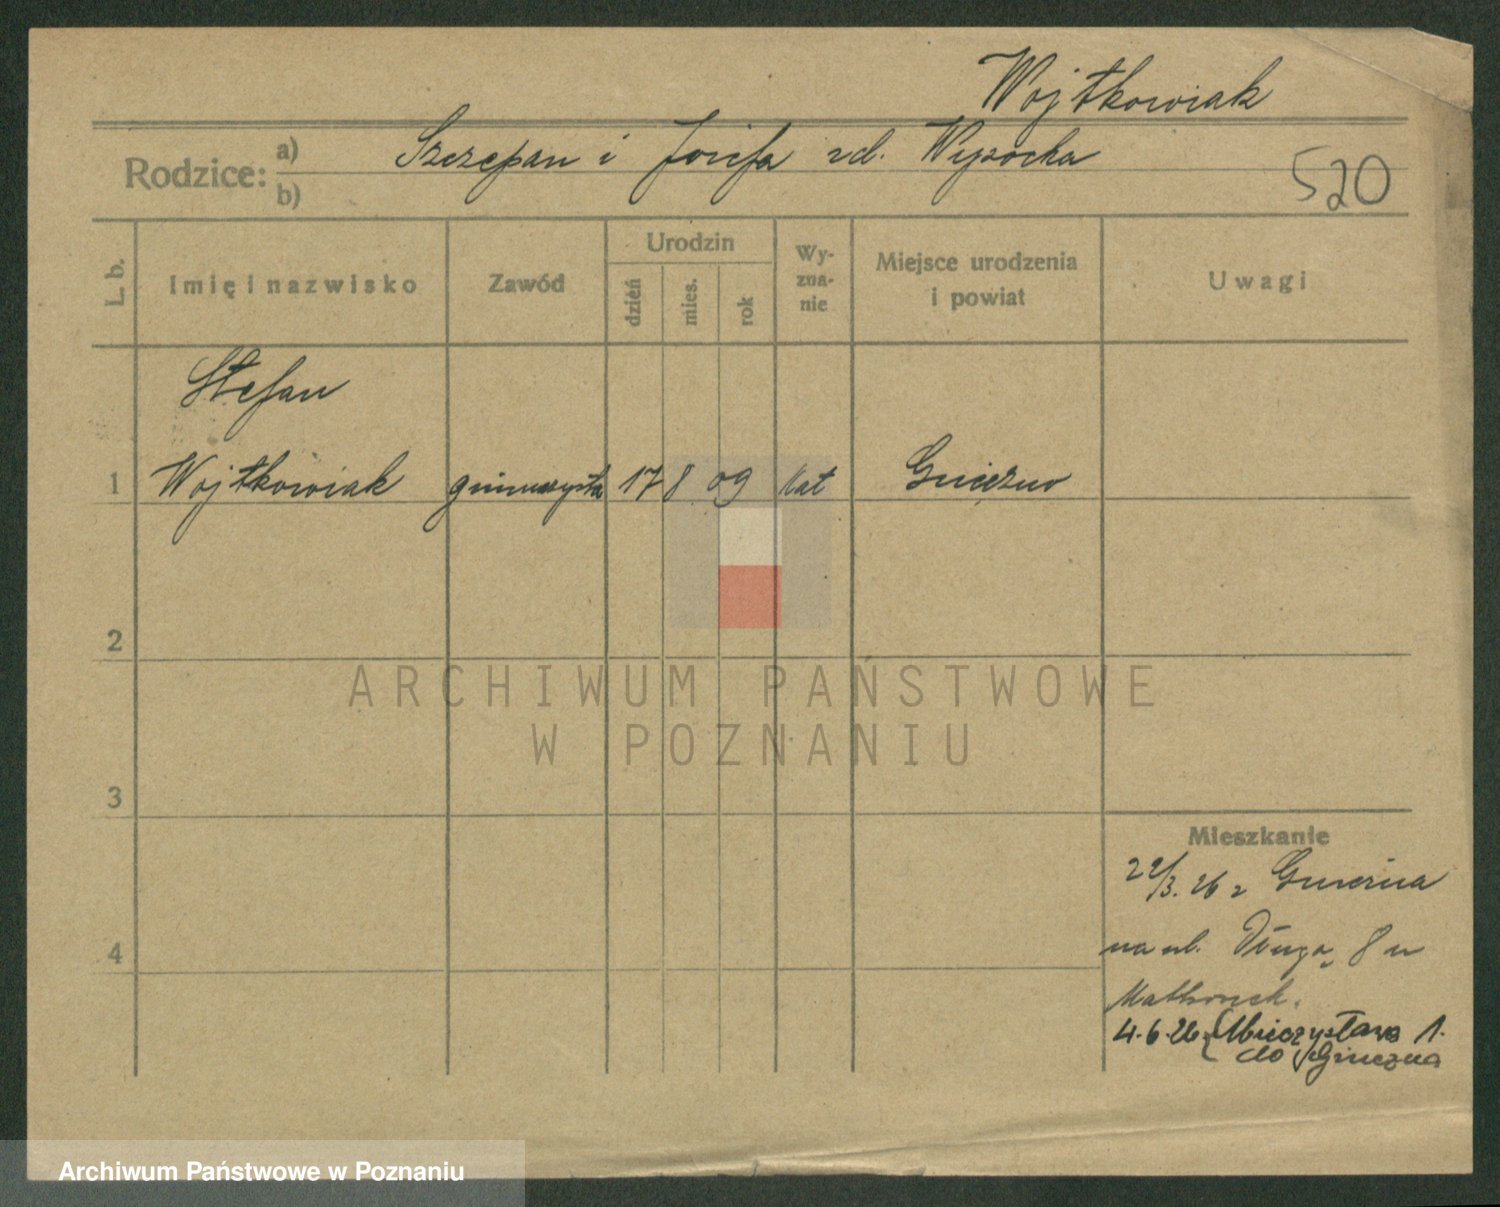 Wojtkowiak
Rodzice: a) b) Szczepan i Józefa zd. Wysocka
520
L. b.
Imię i nazwisko
Zawód
Urodzin
dzień
mies.
rok
Wy-
zna-
nie
Miejsce urodzenia
i powiat
Uwagi
Stefan
1 Wojtkowiak gimnazysta 17 8 09 kat Gniezno
2
3
4
Mieszkanie
22/3. 26 z Gniezna
na ul. Długą 8 u
4.6.26 Mieczysława 1.
do Gniezna
ARCHIWUM PAŃSTWOWE
W POZNANIU
Archiwum Państwowe w Poznaniu